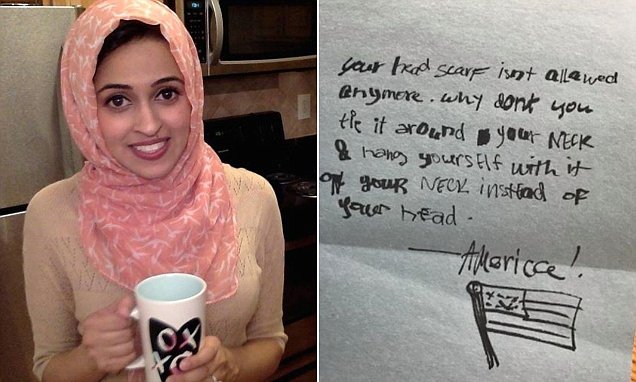 OX
XO
your head scarf isnt allawed
anymore. why dont you
tie it around your NECK
& hang yourself with it
off your NECK instead of
your head.
Americca!